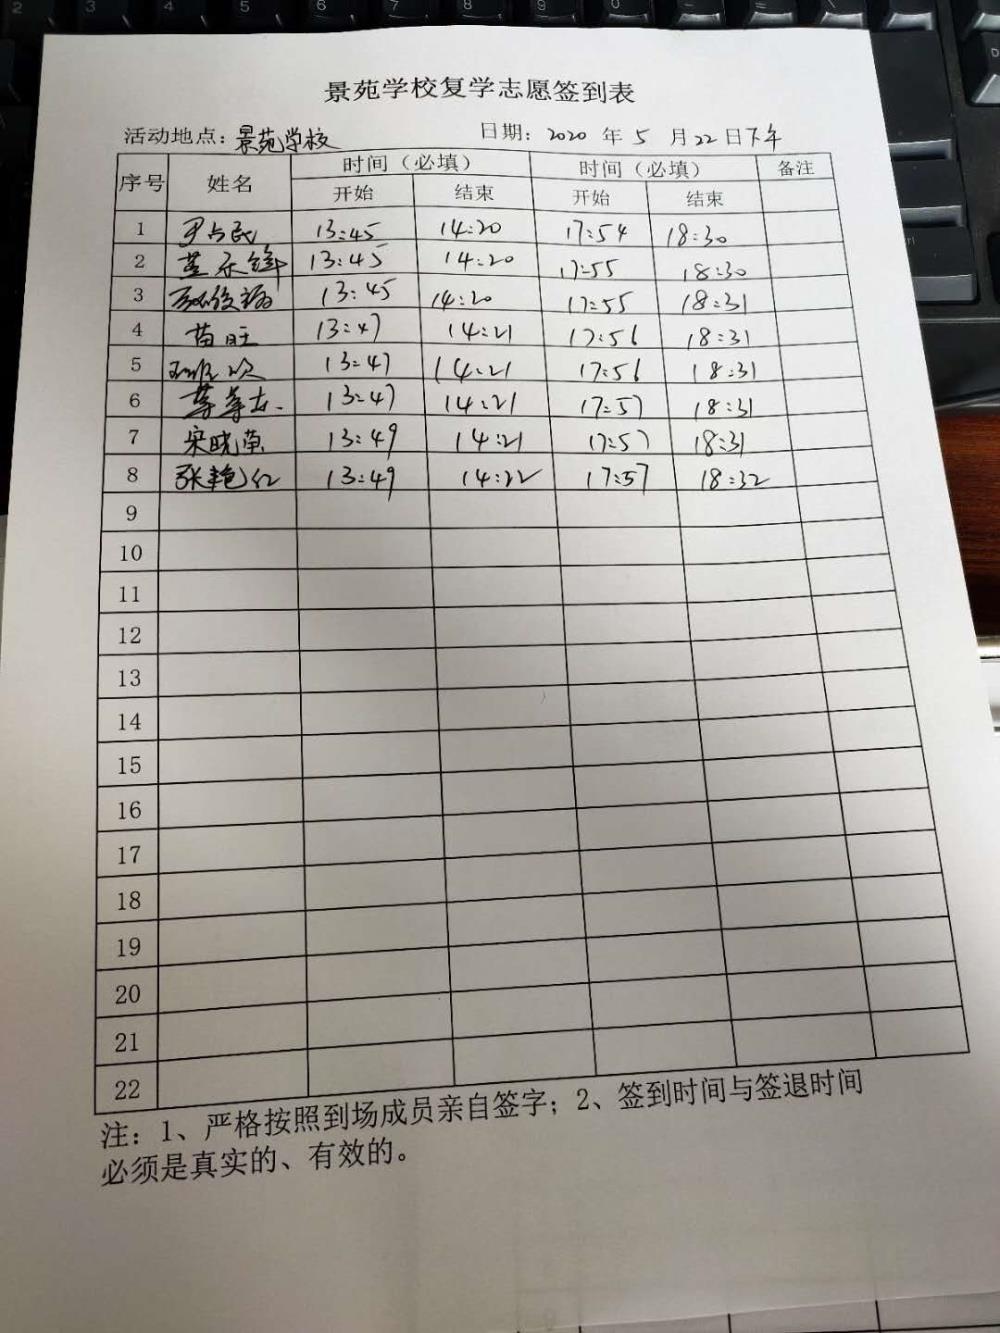 景苑学校复学志愿签到表
活动地点：景苑学校 日期：2020 年 5 月 22 日下午
序号 姓名 时间（必填） 时间（必填） 备注
开始 结束 开始 结束
1 尹占民 13:45 14:20 17:54 18:30
2 13:45 14:20 17:55 18:30
3 13:45 14:20 17:55 18:31
4 苗旺 13:47 14:21 17:56 18:31
5 13:47 14:21 17:56 18:31
6 13:47 14:21 17:57 18:31
7 宋晓南 13:49 14:21 17:57 18:31
8 张艳红 13:49 14:22 17:57 18:32
9
10
11
12
13
14
15
16
17
18
19
20
21
22
注：1、严格按照到场成员亲自签字；2、签到时间与签退时间
必须是真实的、有效的。